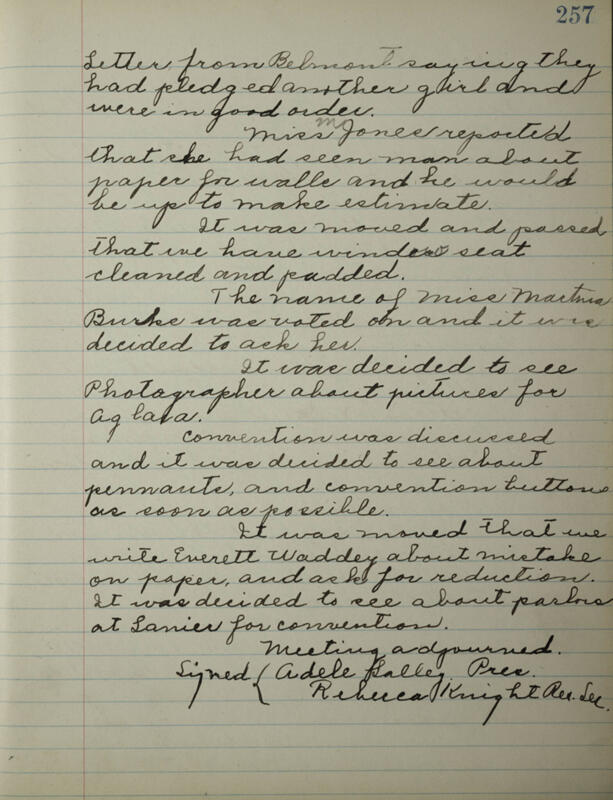 257
Letter from Belmont saying they
had pledged another girl and
were in good order.
Miss Mc Jones reported
that she had seen man about
paper for walls and he would
be up to make estimate.
It was moved and passed
that we have window seat
cleaned and padded.
The name of Miss Martina
Burks was voted on and it was
decided to ask her.
It was decided to see
Photagrapher about pictures for
Aglaia.
Convention was discussed
and it was decided to see about
pennants, and convention buttons
as soon as possible.
It was moved that we
write Everett Waddey about mistake
on paper, and ask for reduction.
It was decided to see about parlors
at Lanier for convention.
Meeting adjourned.
Signed { Adele Salley Pres.
Rebecca Knight Rec. Sec.